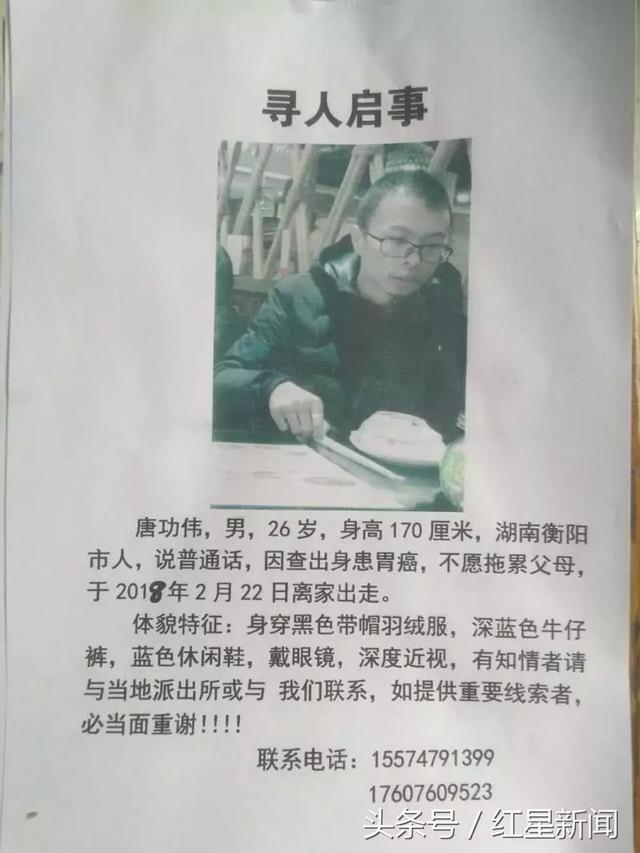 寻人启事
唐功伟，男，26岁，身高170厘米，湖南衡阳
市人，说普通话，因查出身患胃癌，不愿拖累父母，
于2018年2月22日离家出走。
体貌特征：身穿黑色带帽羽绒服，深蓝色牛仔
裤，蓝色休闲鞋，戴眼镜，深度近视，有知情者请
与当地派出所或与 我们联系，如提供重要线索者，
必当面重谢!!!!
联系电话：15574791399
17607609523
头条号／红星新闻